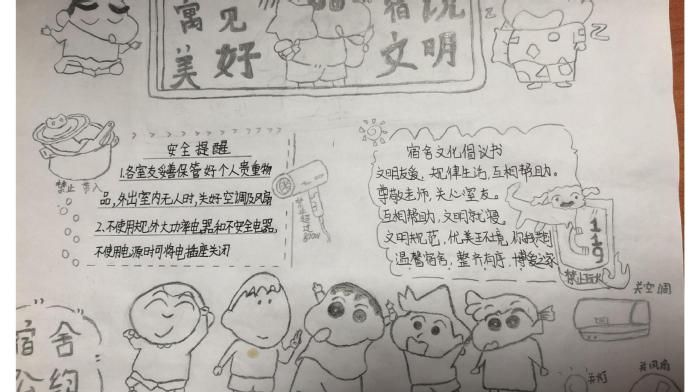 寓见
美好
宿说
文明
安全提醒
1.各室友妥善保管好个人贵重物
品,外出室内无人时,关好空调及风扇
2.不使用规外大功率电器和不安全电器,
不使用电源时可将电插座关闭
禁止带入
禁止超过
800W
宿舍文化倡议书
文明友爱,规律生活,互相帮助。
尊敬老师,关心室友。
互相帮助,文明就寝。
文明规范,优美环境,你我共创
温馨宿舍,整齐有序,博爱之家
119
禁止玩火
关空调
宿舍
公约
关灯
关风扇